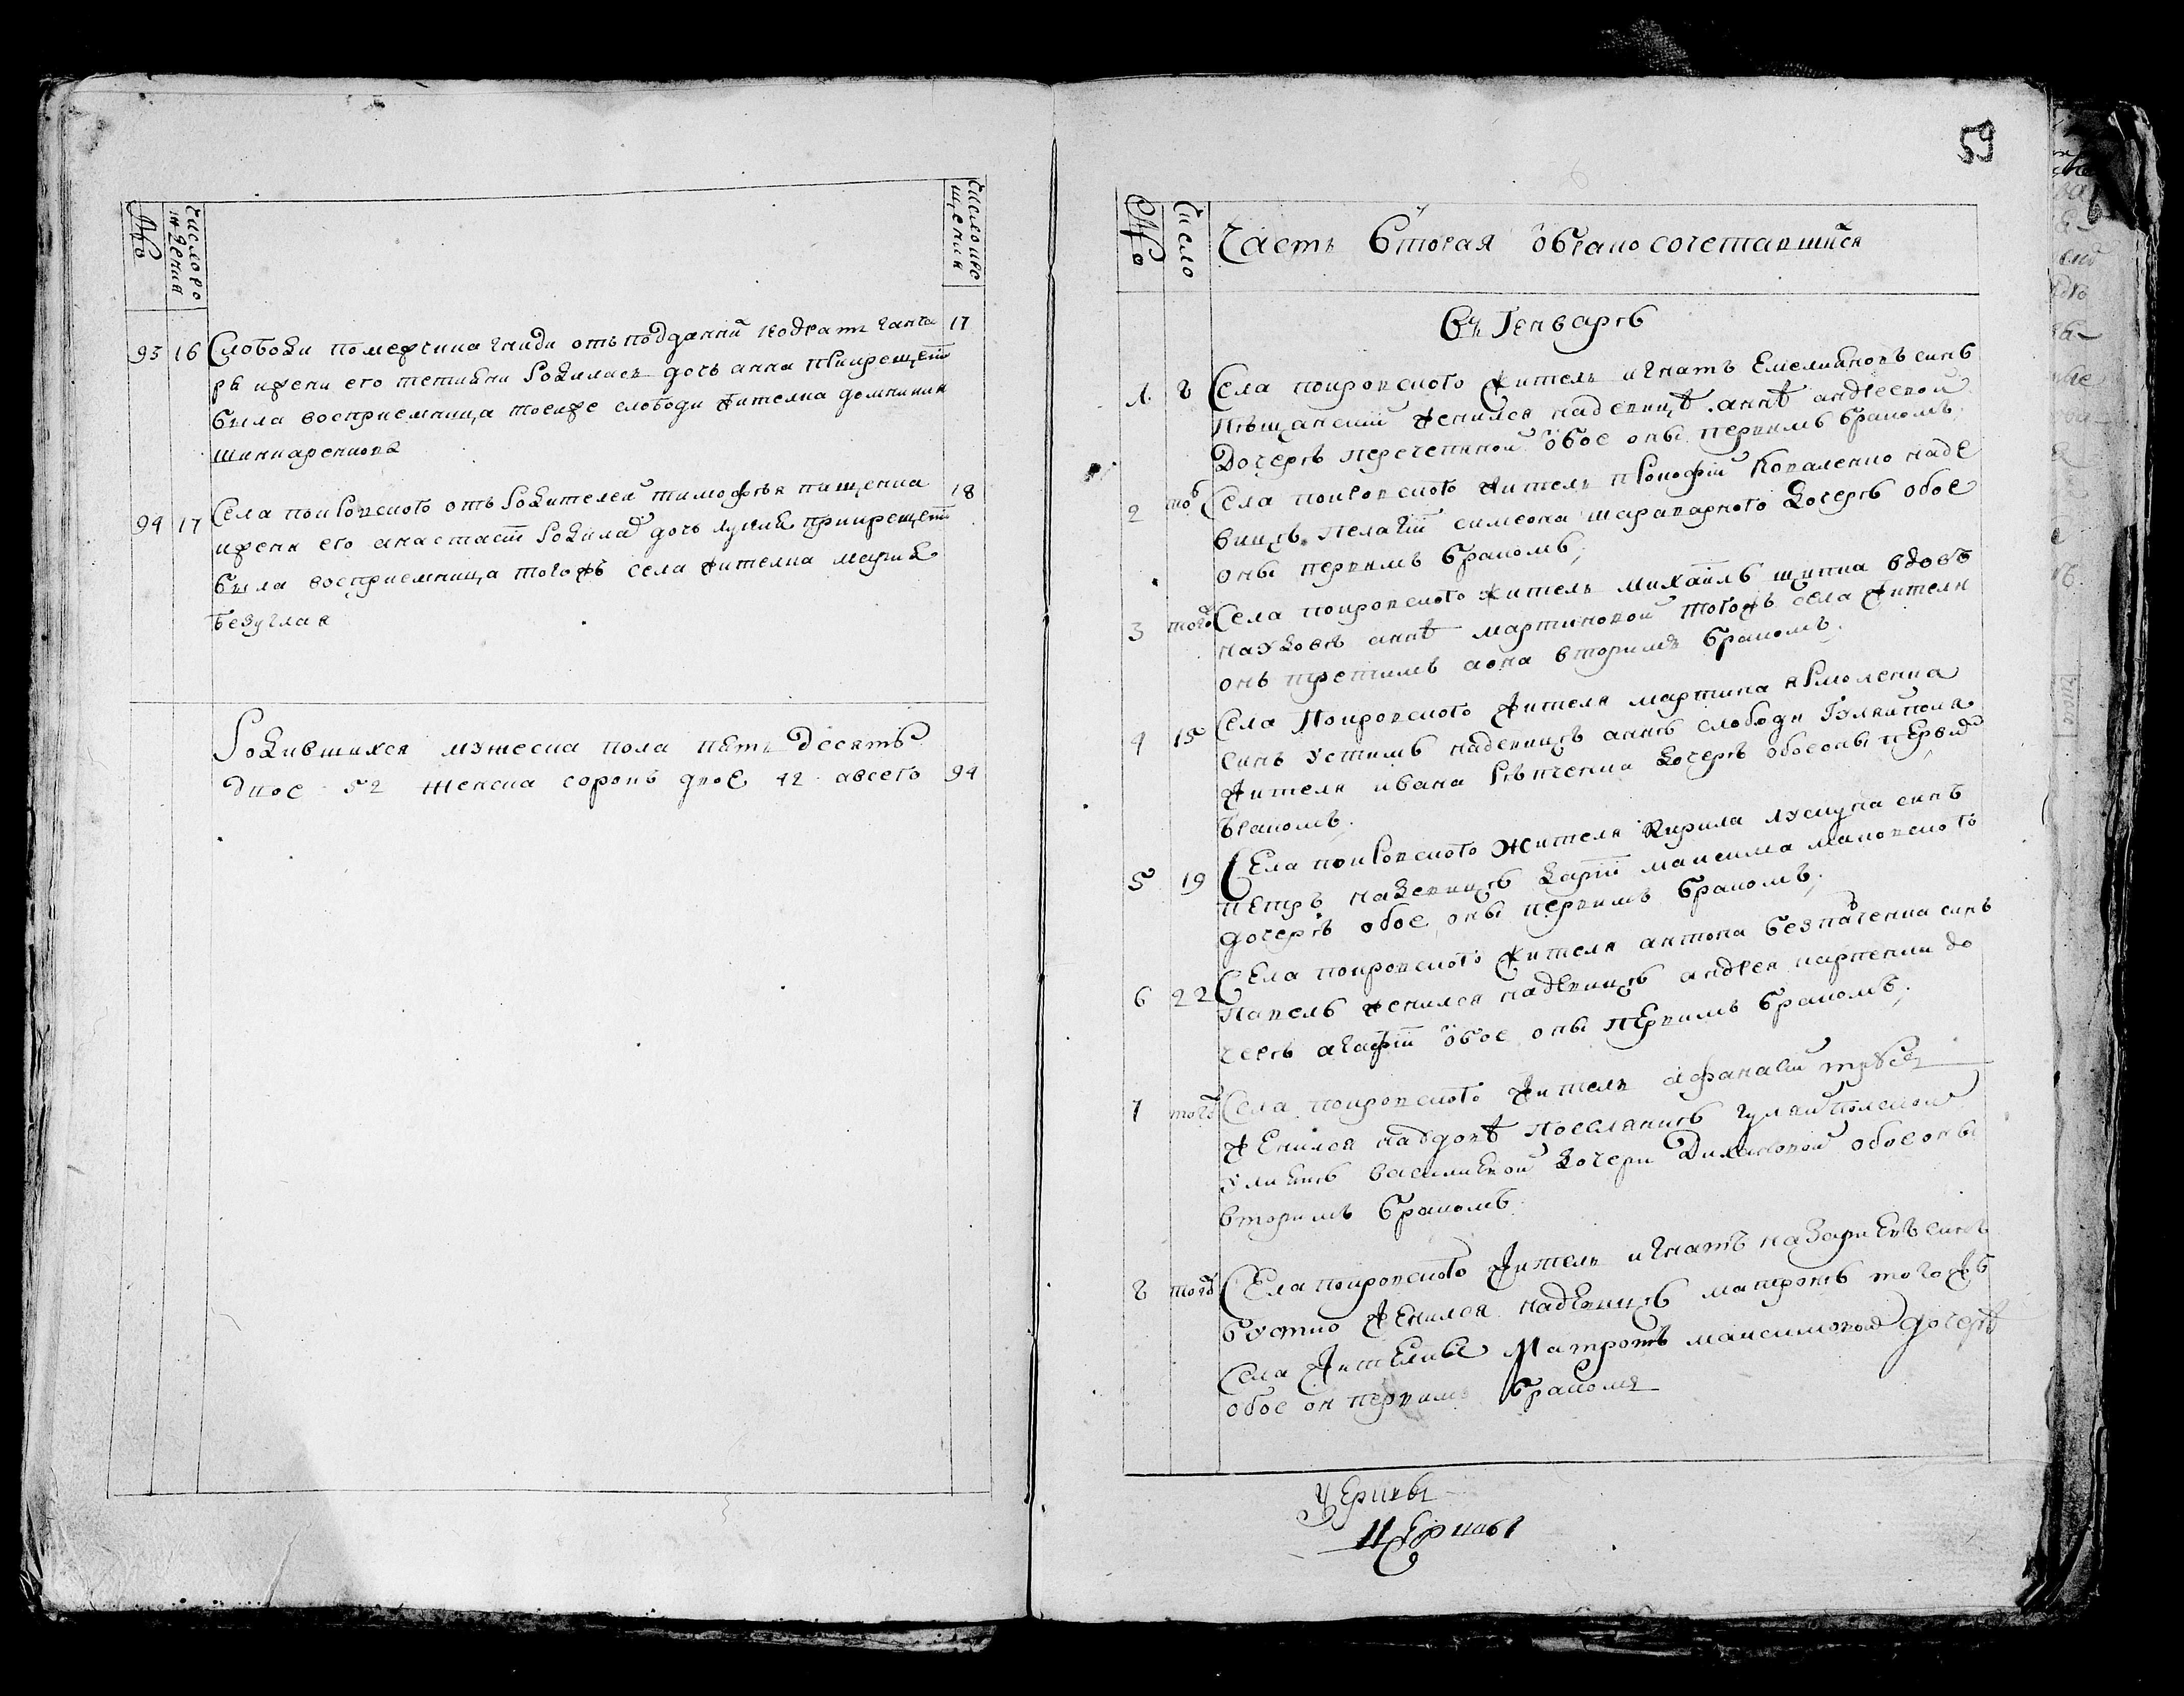 №
Число ро
жденія
Число кре
щенія
93 16 Слободи помещика гнида отъ подданнй кодратъ ганча 17
ри ижени его тетияни родилась дочь анна прикрещеніи
была восприемница тоеиже слободи жителка домникия
шинкаренкова
94 17 Села покровского отъ родителей тимофѣя пищенка 18
ижени его анастасіи родила дочь лукия прикрещеніи
была восприемница того жъ села жителка мария
безуглая
Родившихся мужеска пола пятьдесятъ
двое 52 женска сорокъ двое 42 авсего 94
59
№
Число
Часть вторая о бракосочетавшихся
Въ Генварѣ
1 8 Села покровского житель игнатъ Емелияновъ синъ
пѣщанскій женился надевицѣ аннѣ андреевой
дочерѣ перечепиной обое оны первимъ бракомъ.
2 тогѡ Села покровского житель прокофій Коваленко наде
вицѣ пелагіи симеона шараварного дочерѣ обое
оны первимъ бракомъ;
3 тогѡ Села покровского житель михаилъ щипка вдовъ
на удовѣ аннѣ мартиновой того жъ села жителки
онъ третимъ а она вторимъ бракомъ.
4 15 Села покровского жителя мартина ярмоленка
синъ устимъ надевицѣ аннѣ слободи Гуляйполя
жителя ивана рѣпченка дочерѣ обое оны первимъ
бракомъ.
5 19 Села покровского жителя Кирила луснука синъ
петръ надевицѣ дарїи максима маковского
дочерѣ обое оны первимъ бракомъ;
6 22 Села покровского жителя антона безпаченка синъ
павелъ женился надевицѣ андрея карпенка до
черѣ агафіи обое оны первимъ бракомъ;
7 тогѡ Села покровского житель афанасій
женился на вдовѣ поселянкѣ гуляйполской
улиянѣ василиевой дочери дихановой обое оны
вторимъ бракомъ
8 тогѡ Села покровского житель игнатъ назариевъ синъ
бутко женился надевицѣ матронѣ того жъ
села жителкѣ Матронѣ максимовой дочерѣ
обое он первимъ бракомъ
церквы
Церквы